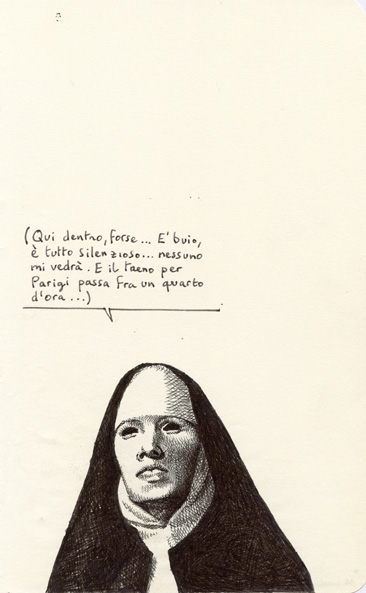 (Qui dentro, forse... E' buio,
è tutto silenzioso... nessuno
mi vedrà. E il treno per
Parigi passa fra un quarto
d'ora...)